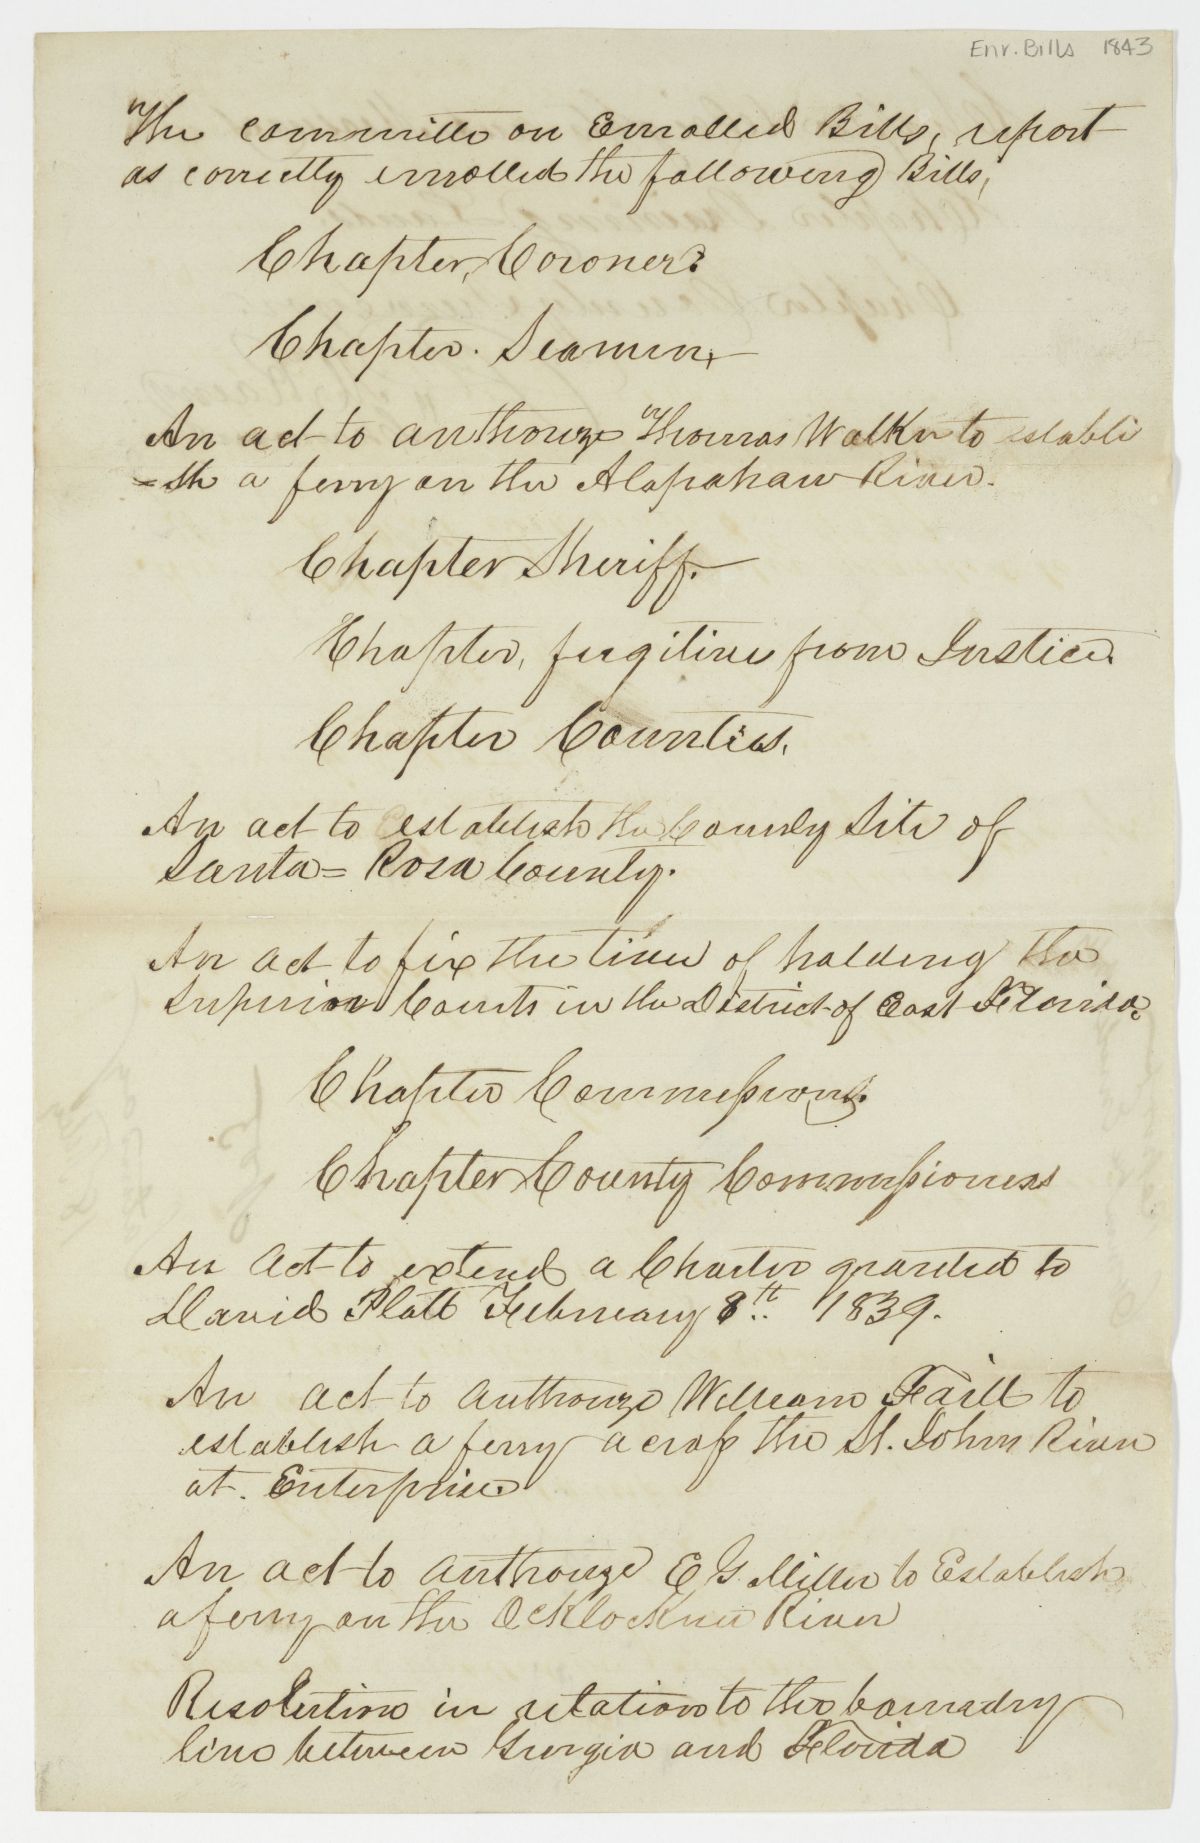 Enr. Bills 1843
The committe on Enrolled Bills, report
as correctly enrolled the following Bills,
Chapter, Coroner.
Chapter. Seamen,
An act to authorize Thomas Walker to establi
=sh a ferry on the Alapahaw River.
Chapter Sheriff.
Chapter, fugitive from Justice.
Chapter Counties.
An act to establish the County Site of
Santa=Rosa County.
An act to fix the time of holding the
Superior Courts in the District of East Florida.
Chapter Commissions.
Chapter County Commissioners
An Act to extend a Charter granted to
David Platt February 8th 1839.
An act to authorize William Faill to
establish a ferry across the St. Johns River
at. Enterprise
An act to authorize E G Miller to Establish
a ferry on the Ocklocknee River
Resolution in relation to the boundry
line between Georgia and Florida